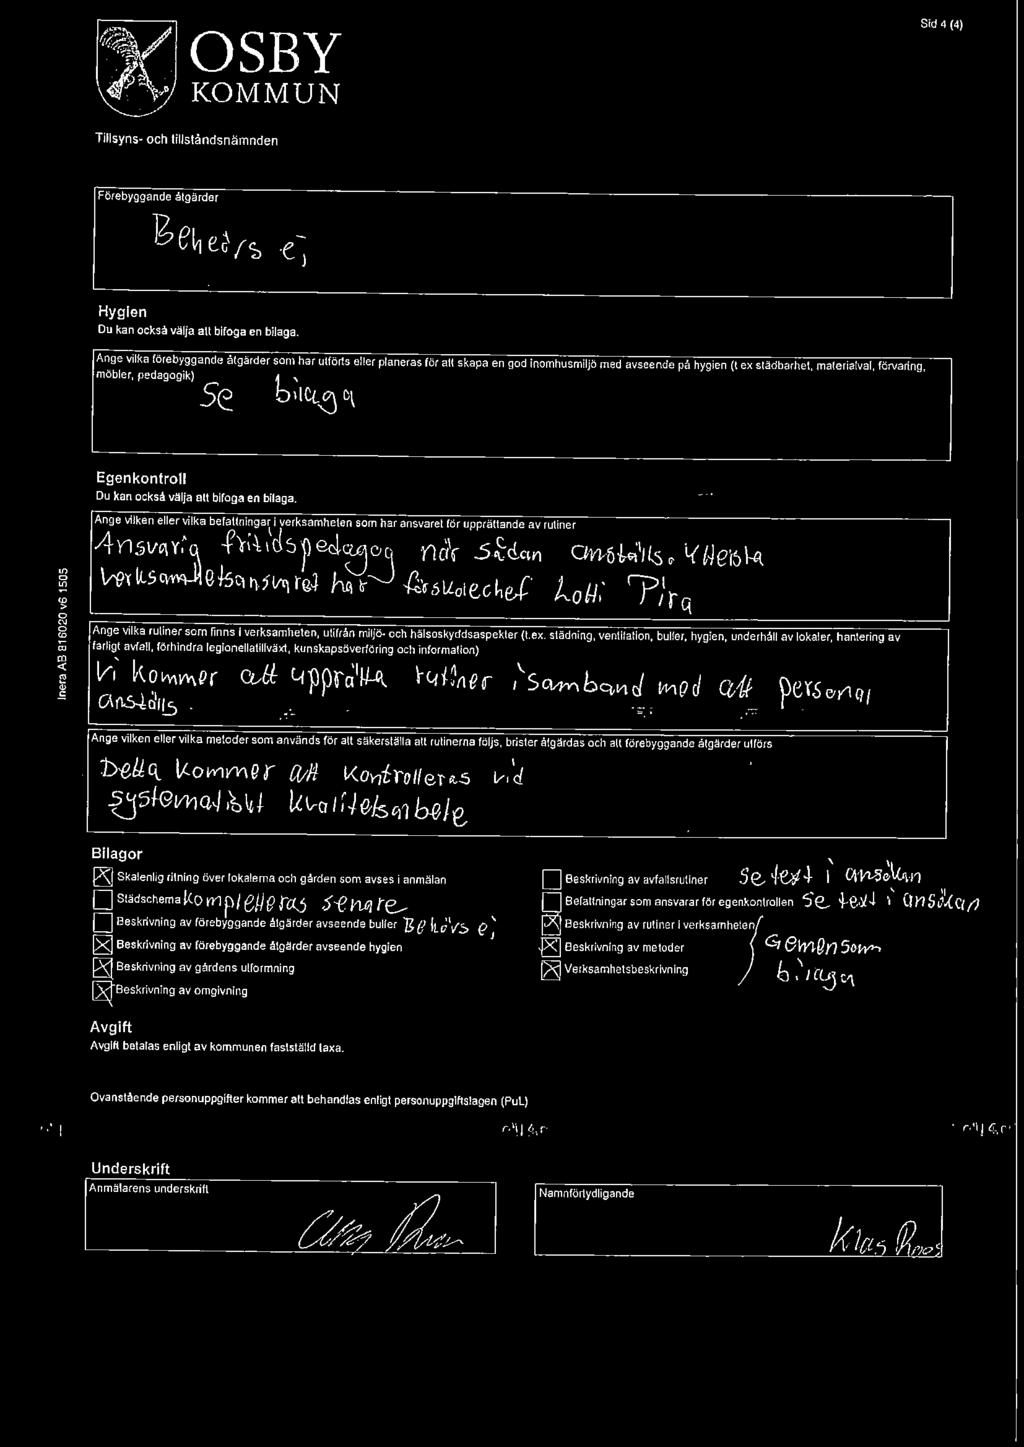 Sid 4 (4)
OSBY
KOMMUN
Tillsyns- och tillståndsnämnden
Förebyggande åtgärder
Behövs ej
Hygien
Du kan också välja att bifoga en bilaga.
Ange vilka förebyggande åtgärder som har utförts eller planeras för att skapa en god inomhusmiljö med avseende på hygien (t ex städbarhet, materialval, förvaring,
möbler, pedagogik)
Se bilaga
Egenkontroll
Du kan också välja att bifoga en bilaga.
Ange vilken eller vilka befattningar i verksamheten som har ansvaret för upprättande av rutiner
Ansvarig fritidspedagog när sådan anställs. Yttersta
verksamhetsansvaret har förskolechef Lotti Pira
Ange vilka rutiner som finns i verksamheten, utifrån miljö- och hälsoskyddsaspekter (t.ex. städning, ventilation, buller, hygien, underhåll av lokaler, hantering av
farligt avfall, förhindra legionellatillväxt, kunskapsöverföring och information)
Vi kommer att upprätta rutiner i samband med att personal
anställs.
Ange vilken eller vilka metoder som används för att säkerställa att rutinerna följs, brister åtgärdas och att förebyggande åtgärder utförs
Detta kommer att kontrolleras vid
systematiskt kvalitetsarbete
Inera AB 816020 v6 1505
Bilagor
Skalenlig ritning över lokalerna och gården som avses i anmälan
Städschema kompletteras senare
Beskrivning av förebyggande åtgärder avseende buller Behövs ej
Beskrivning av förebyggande åtgärder avseende hygien
Beskrivning av gårdens utformning
Beskrivning av omgivning
Beskrivning av avfallsrutiner Se text i ansökan
Befattningar som ansvarar för egenkontrollen Se text i ansökan
Beskrivning av rutiner i verksamheten
Beskrivning av metoder
Verksamhetsbeskrivning
Gemensam
bilaga
Avgift
Avgift betalas enligt av kommunen fastställd taxa.
Ovanstående personuppgifter kommer att behandlas enligt personuppgiftslagen (PuL)
Underskrift
Anmälarens underskrift
Namnförtydligande
Klas